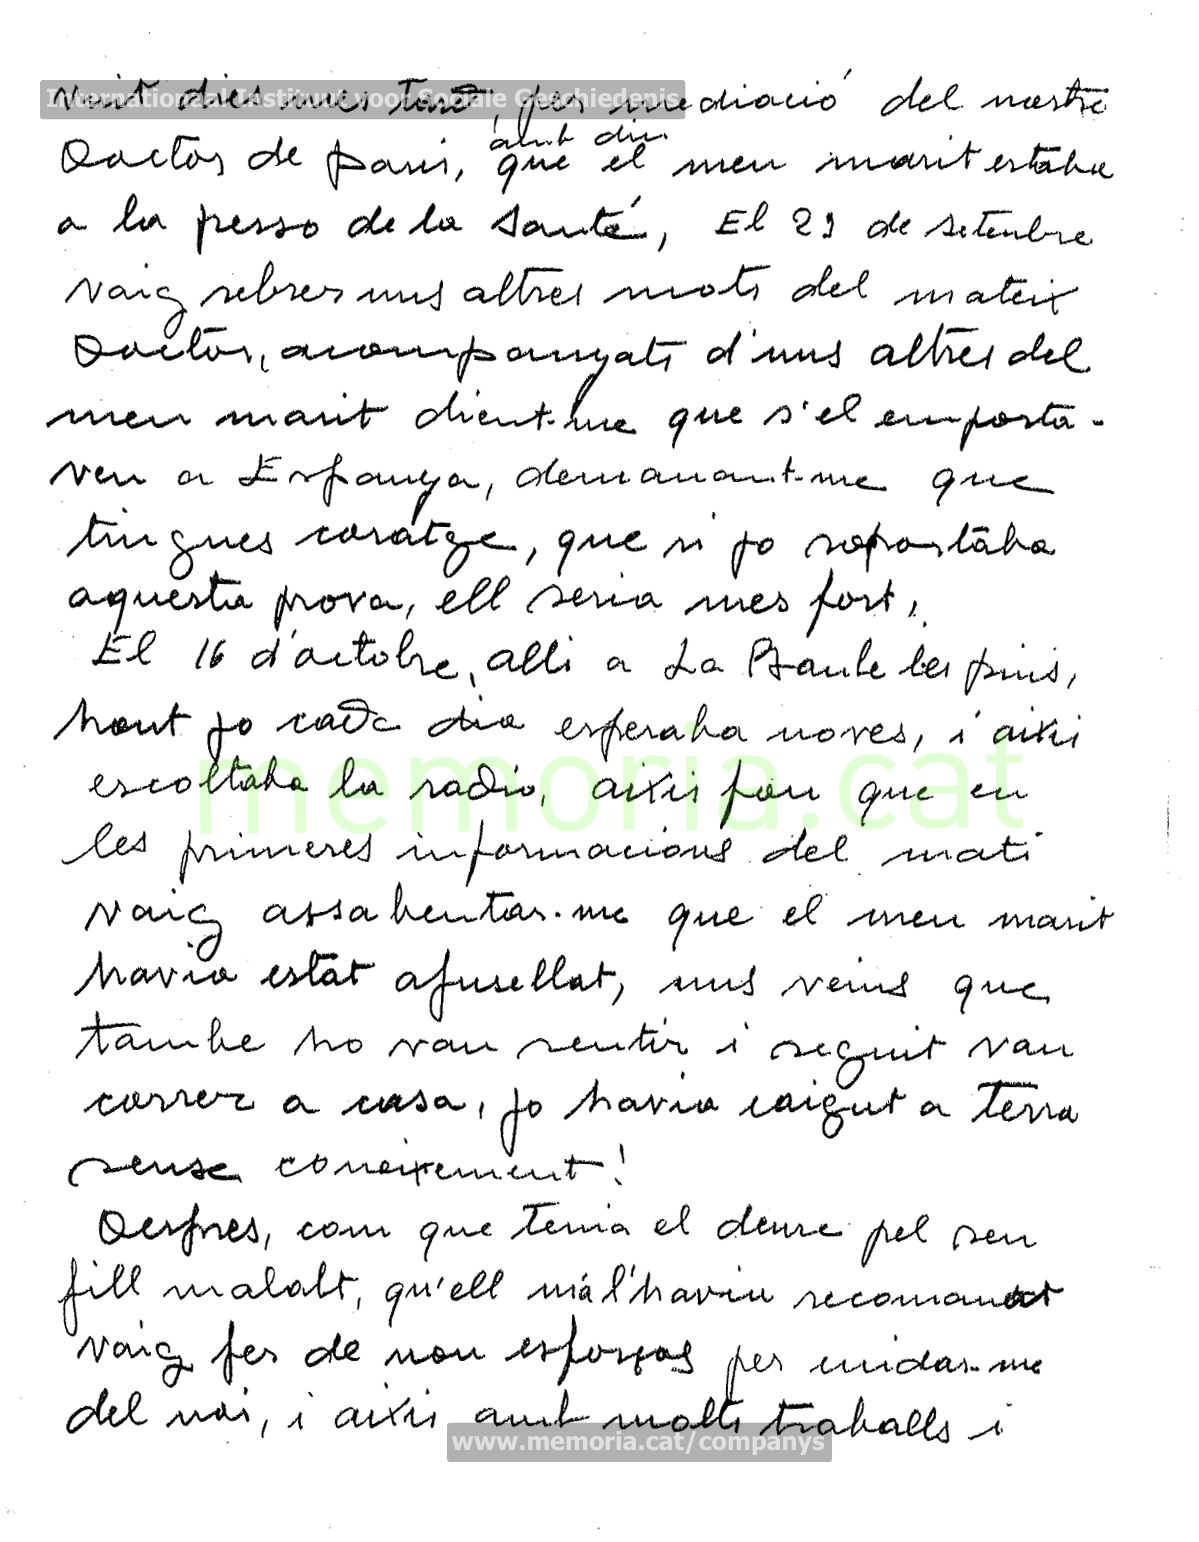 Internationaal Instituut voor Sociale Geschiedenis
Vuit dies mes tard, per mediació del nostre
Doctor de Paris, que el meu marit estaba
a la presso de la Santé, El 29 de setembre
vaig rebrer uns altres mots del mateix
Doctor, acompanyats d'uns altres del
meu marit dient-me que s'el emporta-
ven a Espanya, demanant-me que
tingues coratge, que si jo soportaba
aquesta prova, ell seria mes fort,
El 16 d'octobre, alli a La Baule les pins,
hont jo cada dia esperaba noves, i aixis
escoltaba la radio, aixis fou que en
les primeres informacions del mati
vaig assabentar-me que el meu marit
havia estat afusellat, uns veins que
tambe ho van sentir i seguit van
correr a casa, jo havia caigut a terra
sense coneixement!
Despres, com que tenia el deure pel seu
fill malalt, qu'ell m'al'havia recomanat
vaig fer de nou esforços per cuidar-me
del noi, i aixis amb molts traballs i
memoria.cat
www.memoria.cat/companys